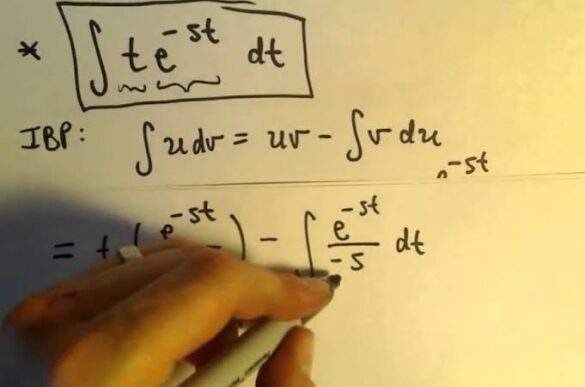 * ∫ t e^-st dt
IBP: ∫ u dv = uv - ∫ v du
e^-st
= t ( e^-st ) - ∫ e^-st / -s dt